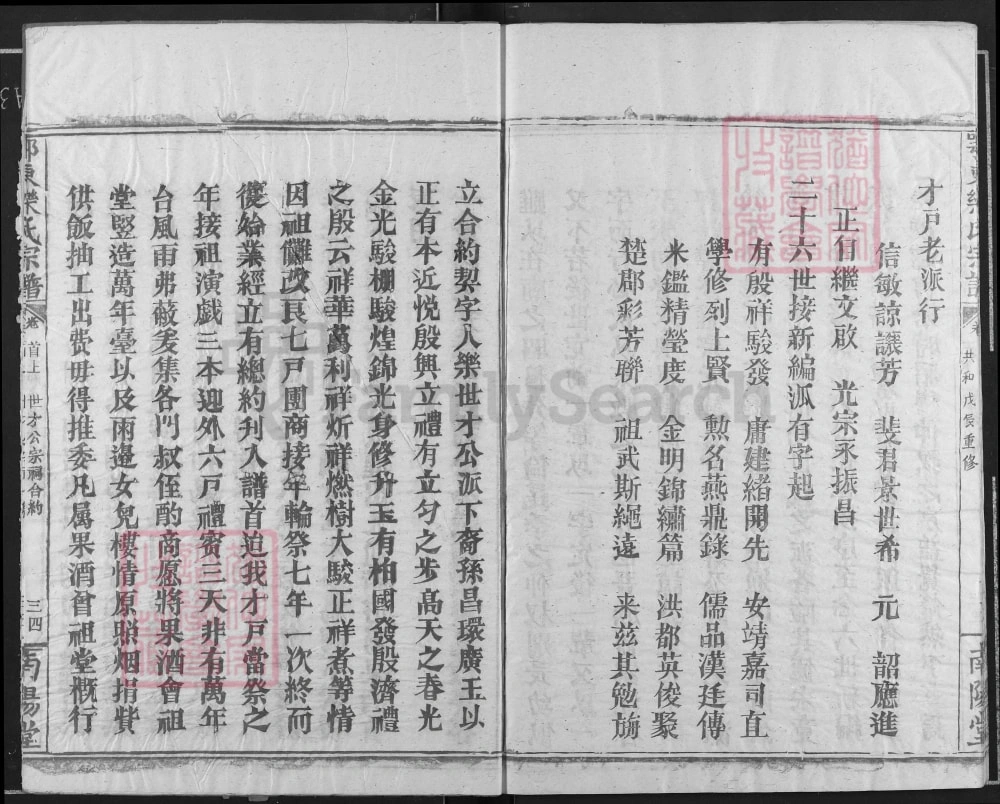 才戶老派行
信敏諒讓芳　斐君景世希　元　韶應進
正信繼文啟　光宗永振昌
二十六世接新編派有字起
有殷祥駿發　庸建緒開先　安靖嘉司直
學修列上賢　勲名燕鼎錄　儒品漢廷傳
米鑑精瑩度　金明錦繡篇　洪都英俊聚
楚郡彩芳聯　祖武斯繩遠　來兹其勉旃
共和戊辰重修
南陽堂
立合約契字人樂世才公派下裔孫昌環廣玉以
正有本近悅殷興立禮有立匀之步高天之春光
金光駿棚駿煌錦光身修升玉有柏國發殷濟禮
之殷云祥華萬利祥炘祥燃樹大駿正祥煮等情
因祖儺改良七戶團商接年輪祭七年一次終而
復始業經立有總約刋入譜首迫我才戶當祭之
年接祖演戲三本迎外六戶禮賓三天非有萬年
台風雨弗蔽爰集各門叔侄酌商愿將果酒會祖
堂竪造萬年臺以及兩邉女兒樓情原照烟捐費
供飯抽工出費毋得推委凡属果酒曾祖堂概行
鄂東樂氏宗譜
卷首上　世才公宗祠合約
三四
南陽堂
FamilySearch